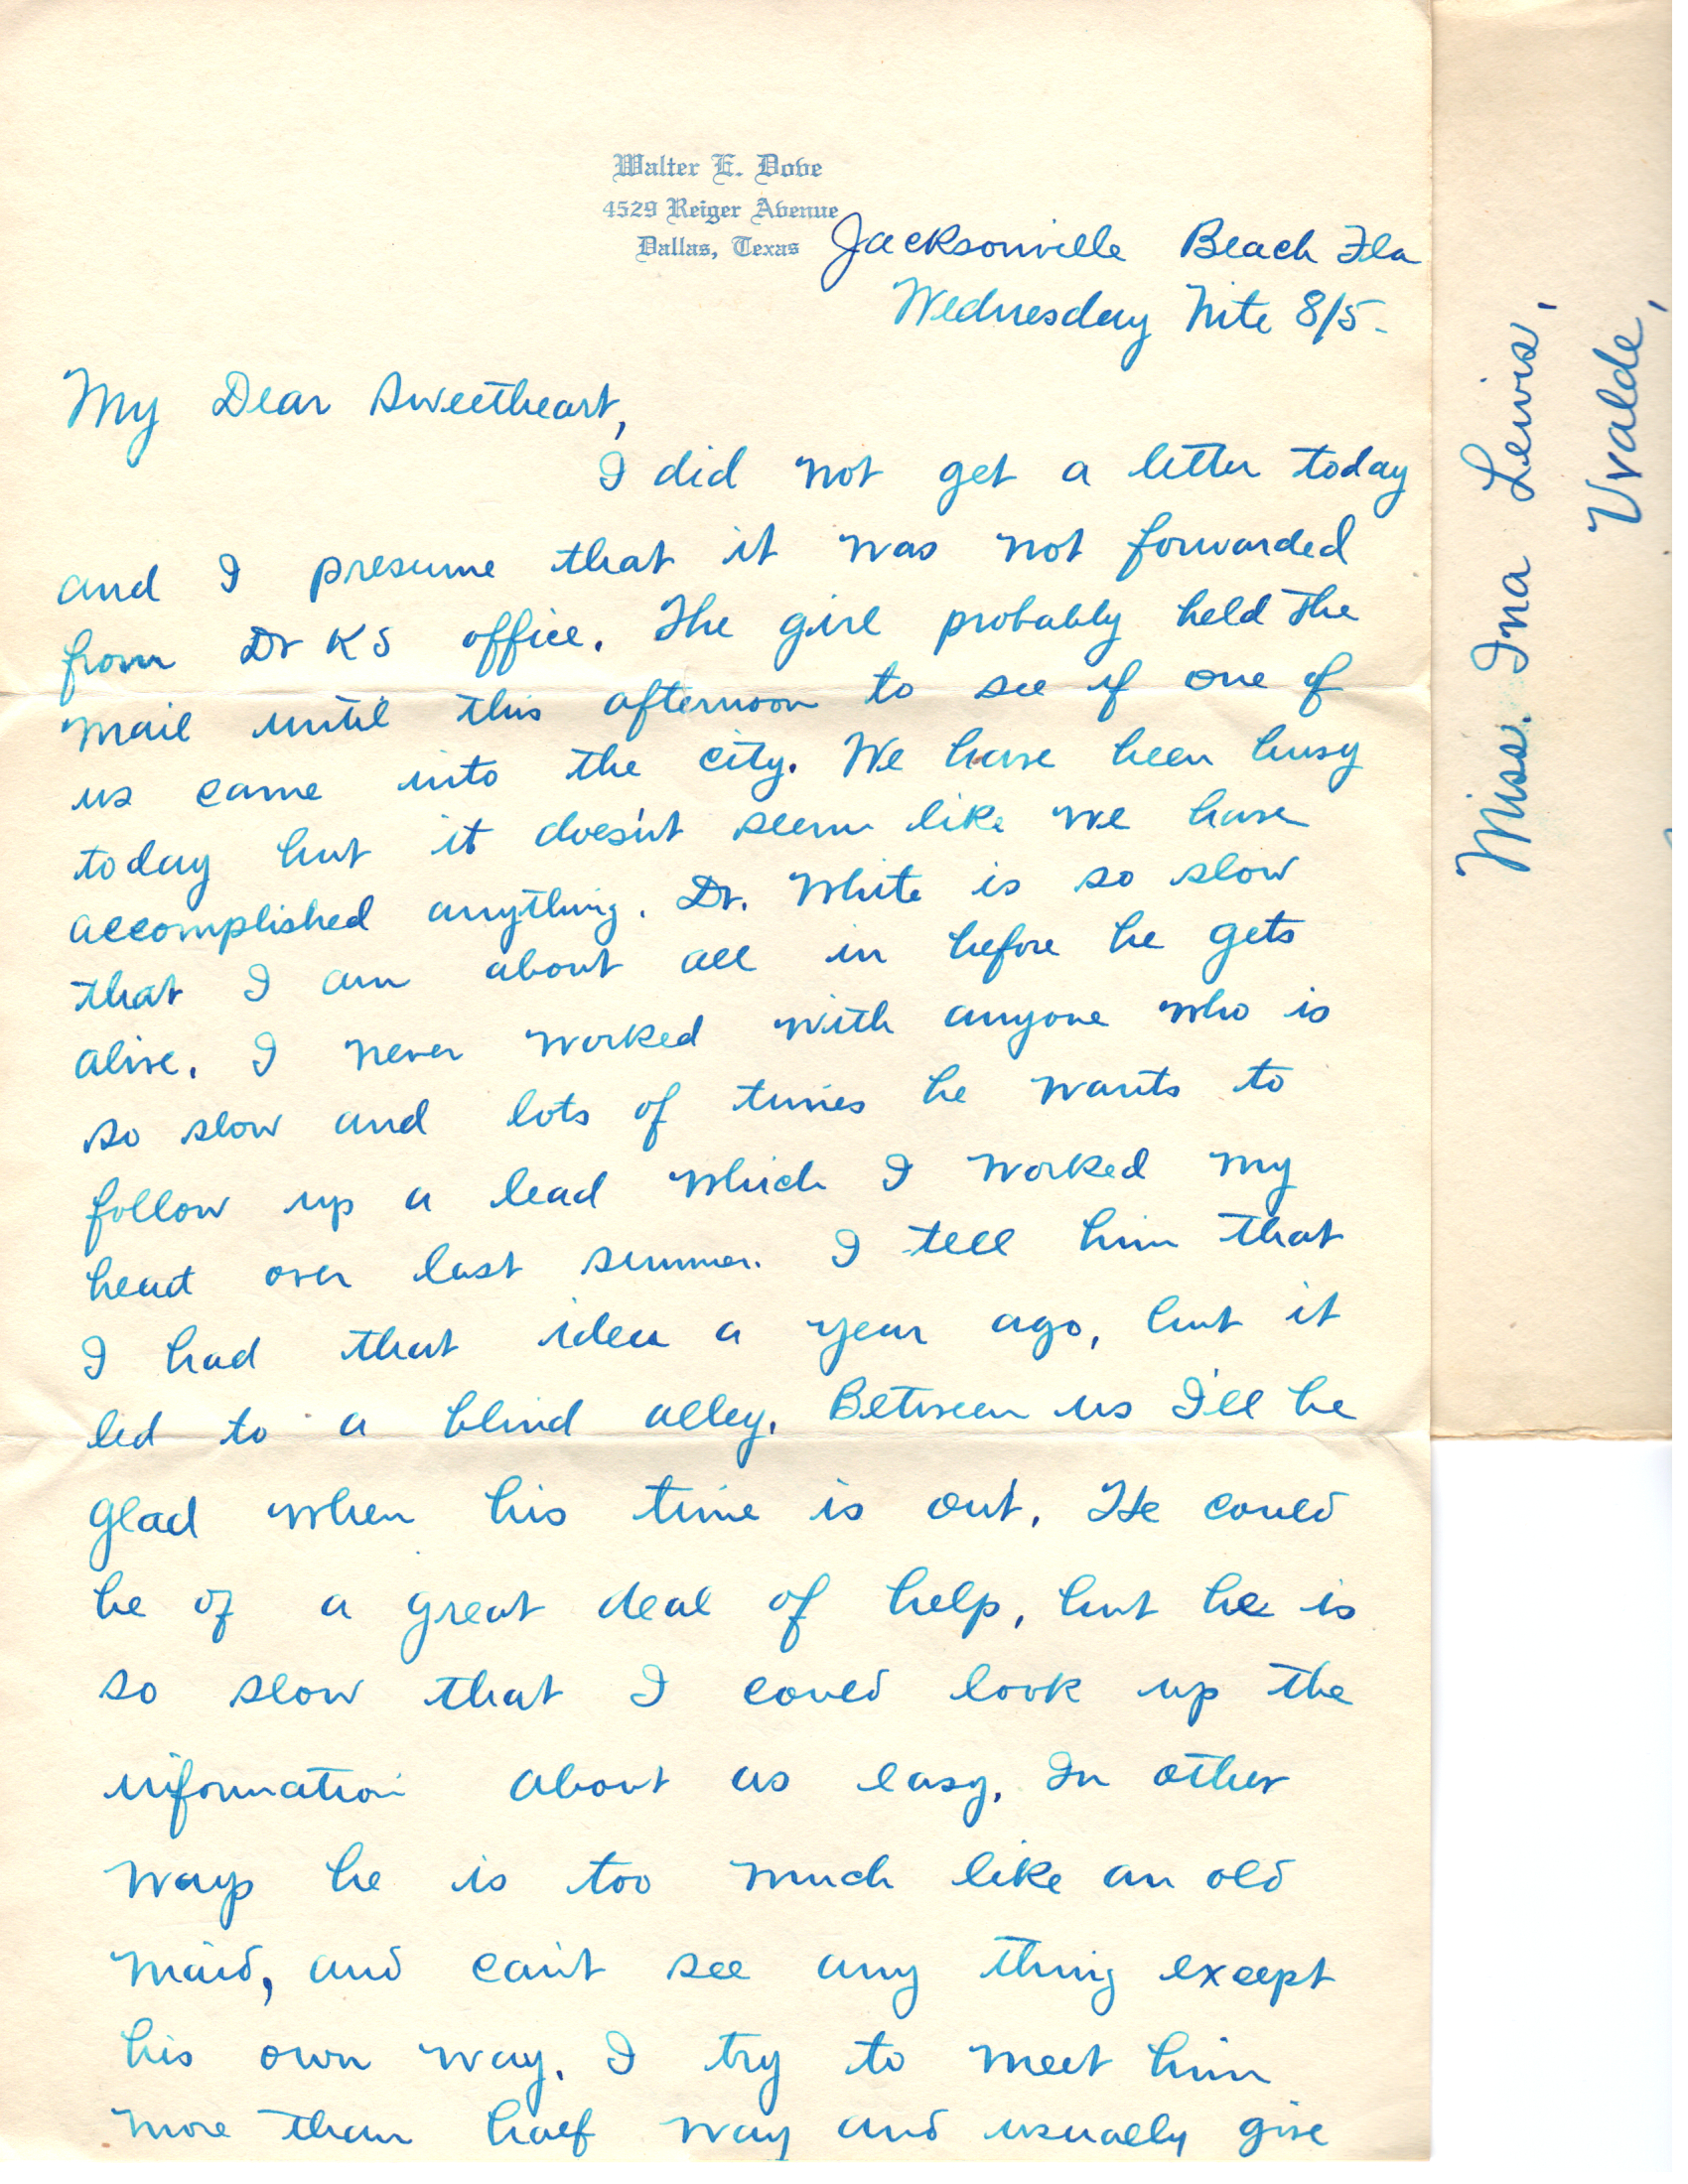 Walter E. Dove
4529 Reiger Avenue
Dallas, Texas
Jacksonville Beach Fla
Wednesday Nite 8/5-
My Dear Sweetheart,
I did not get a letter today
and I presume that it was not forwarded
from Dr KS office. The girl probably held the
mail until this afternoon to see if one of
us came into the city. We have been busy
today but it doesn't seem like we have
accomplished anything. Dr. White is so slow
that I am about all in before he gets
alive. I never worked with anyone who is
so slow and lots of times he wants to
follow up a lead which I worked my
head over last summer. I tell him that
I had that idea a year ago, but it
led to a blind alley. Between us I'll be
glad when his time is out. He could
be of a great deal of help, but he is
so slow that I could look up the
information about as easy. In other
ways he is too much like an old
maid, and can't see any thing except
his own way. I try to meet him
more than half way and usually give
Miss. Ina Lewis,
Uvalde,